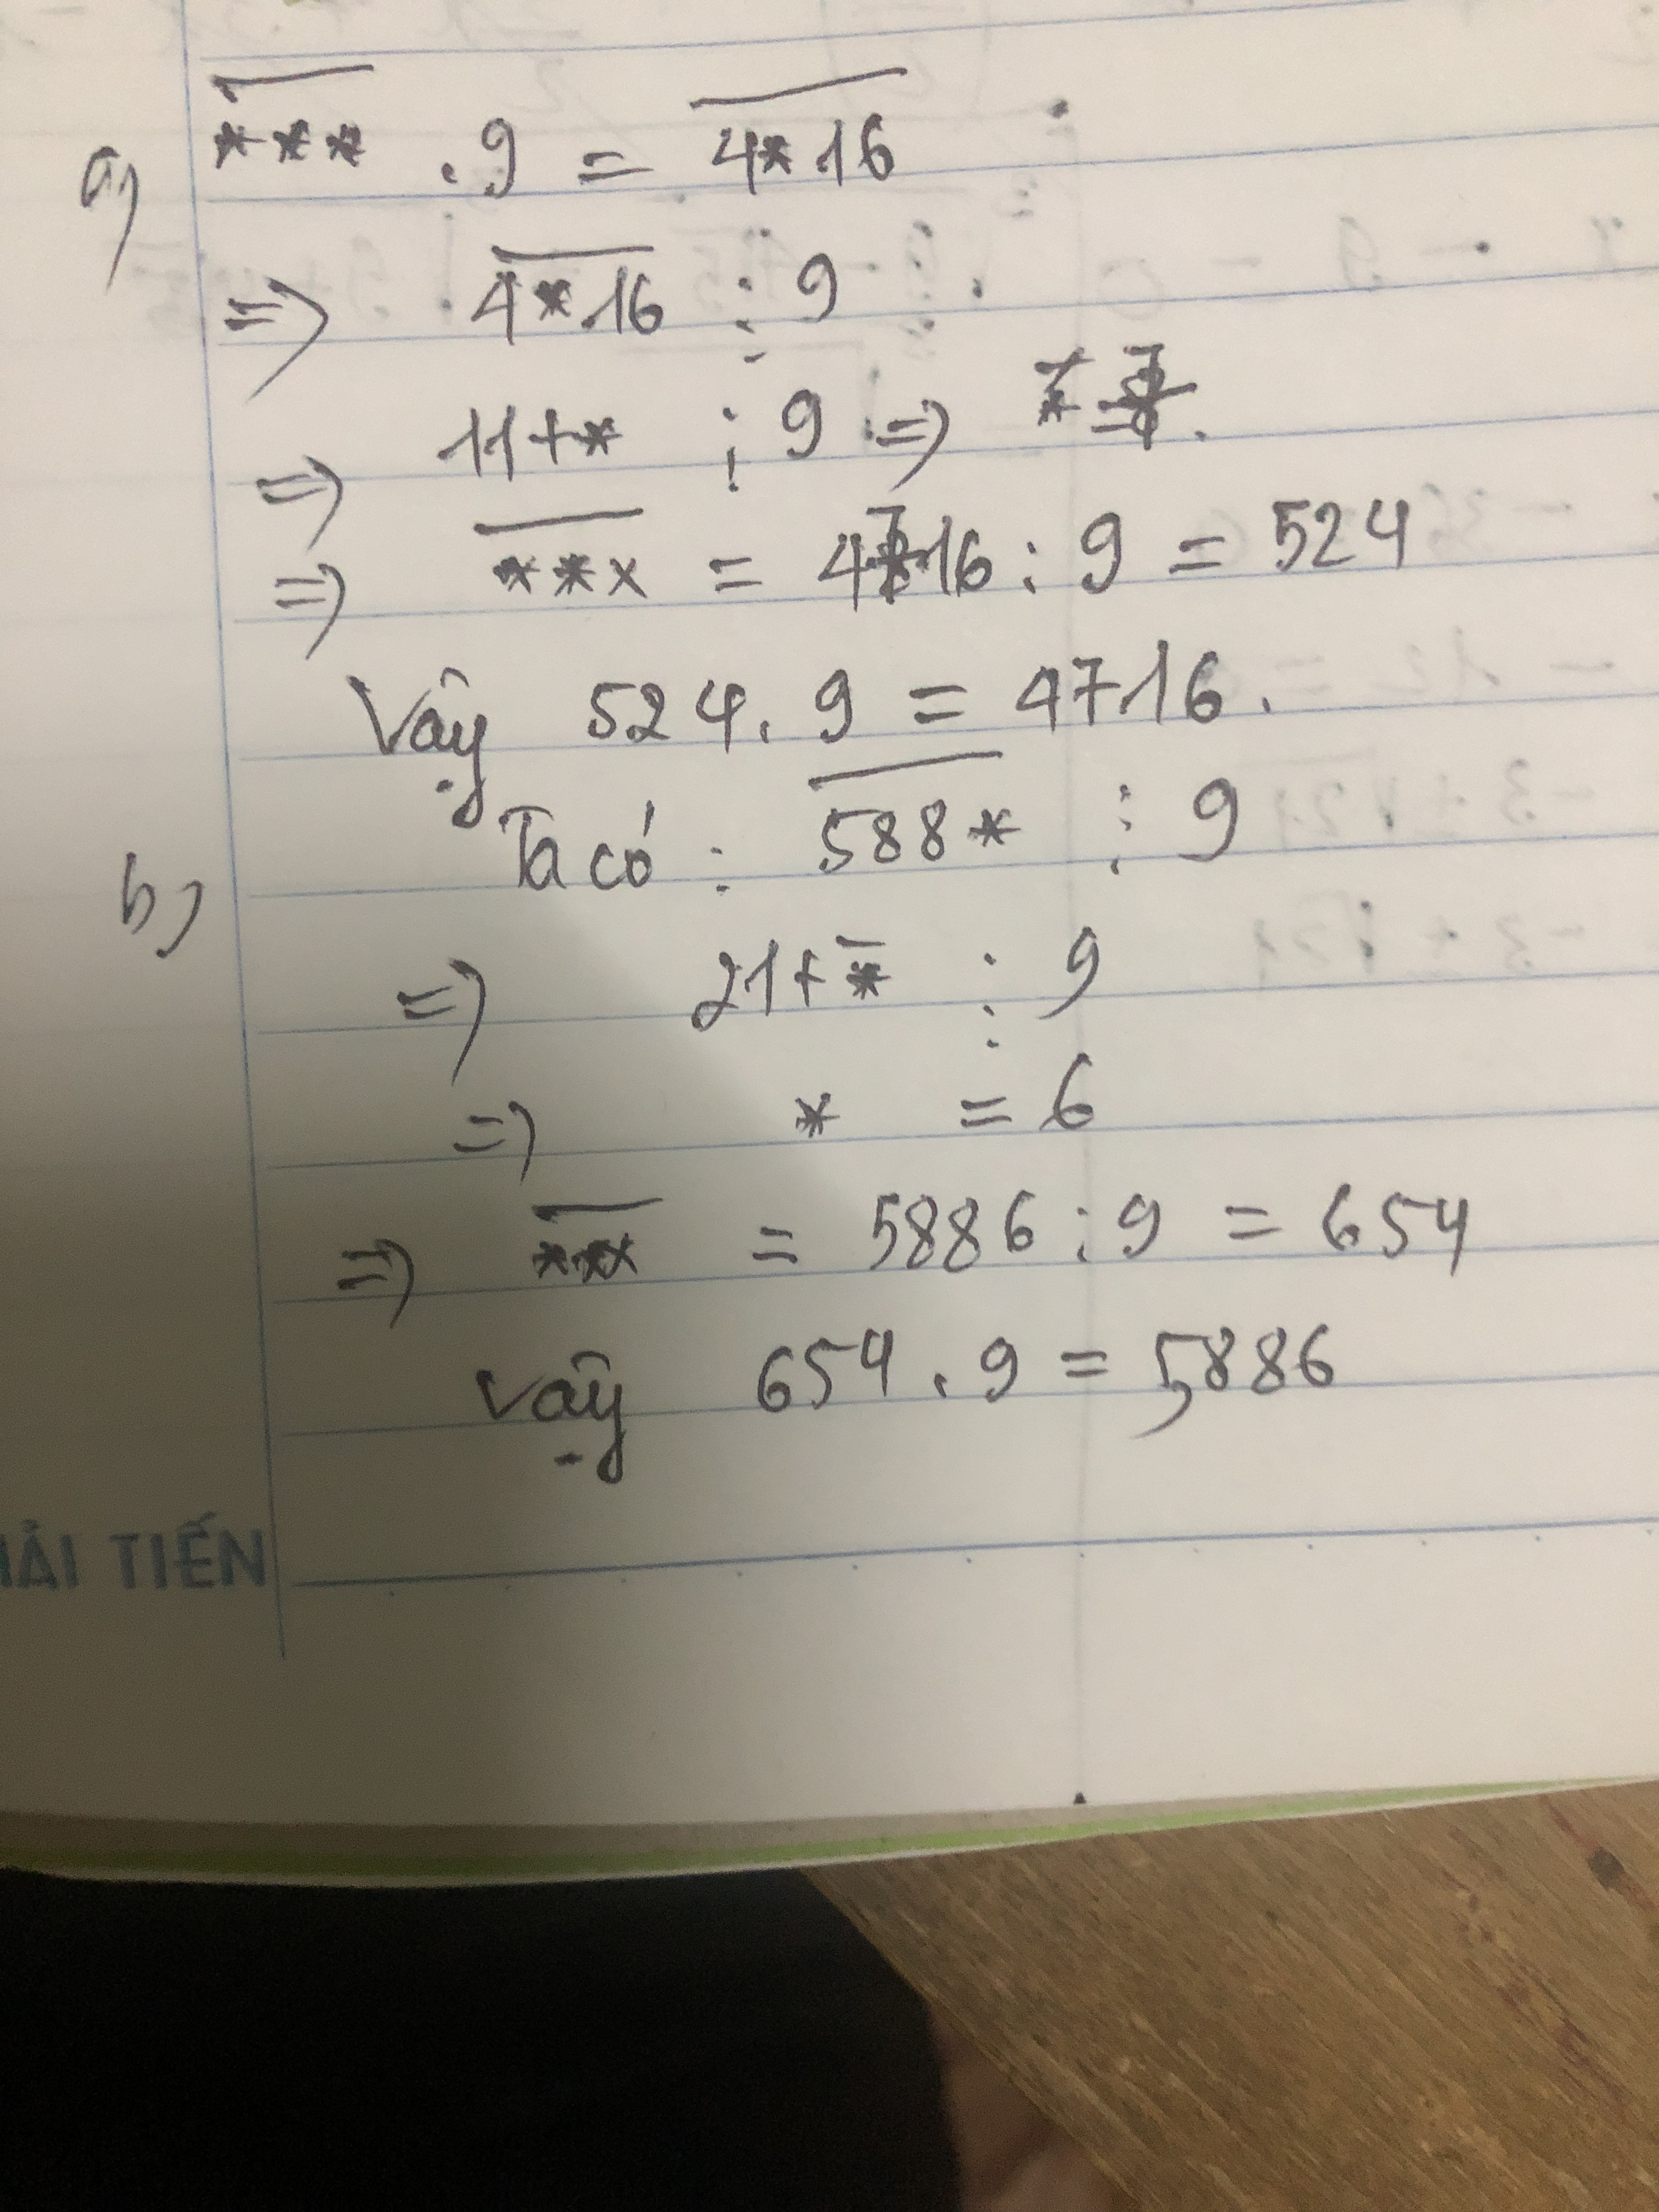 a) *** . 9 = 4*16
=> 4*16 ⋮ 9
=> 11+* ⋮ 9 => * = 7.
=> **x = 4716 : 9 = 524
Vậy 524 . 9 = 4716.
b) Ta có : 588* ⋮ 9
=> 21+* ⋮ 9
=> * = 6
=> *** = 5886 : 9 = 654
Vậy 654 . 9 = 5886
ẢI TIẾN